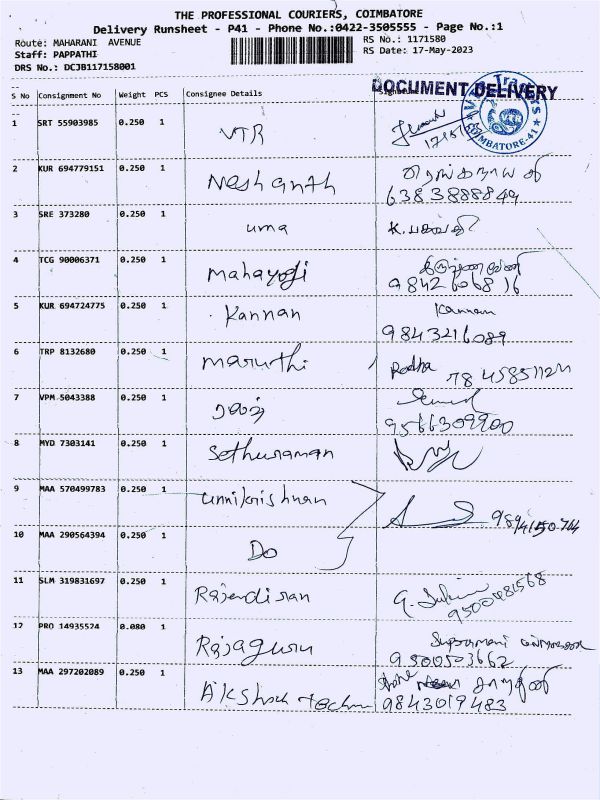 THE PROFESSIONAL COURIERS, COIMBATORE
Delivery Runsheet - P41 - Phone No.:0422-3505555 - Page No.:1
Route: MAHARANI AVENUE
RS No.: 1171580
Staff: PAPPATHI
RS Date: 17-May-2023
DRS No.: DCJB117158001
DOCUMENT DELIVERY
S No Consignment No Weight PCS Consignee Details
COIMBATORE-41
1 SRT 55903985 0.250 1 VTR
2 KUR 694779151 0.250 1 Neshanth
6383888849
3 SRE 373280 0.250 1 uma K.
4 TCG 90006371 0.250 1 Mahayogi
9842606816
5 KUR 694724775 0.250 1 Kannan Kannan
9843216089
6 TRP 8132680 0.250 1 Maruthi Radha
7 VPM 5043388 0.250 1
9566309900
8 MYD 7303141 0.250 1 Sethuraman
9 MAA 570499783 0.250 1 unnikrishnan
10 MAA 290564394 0.250 1 Do
11 SLM 319831697 0.250 1 Rajendiran G.
9500481568
12 PRO 14935524 0.080 1 Rajaguru
9500503662
13 MAA 297202089 0.250 1
9843019483